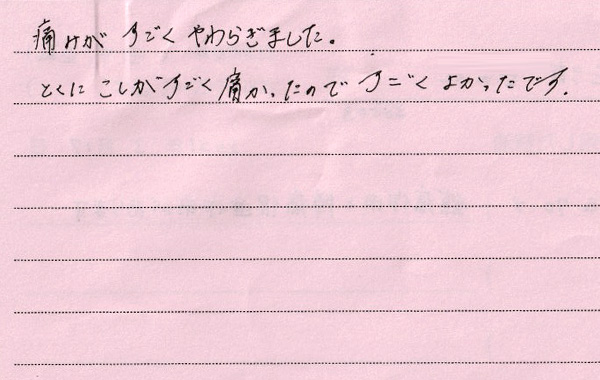 痛みが すごく やわらぎました。
とくに こしが すごく 痛かったので すごく よかったです.